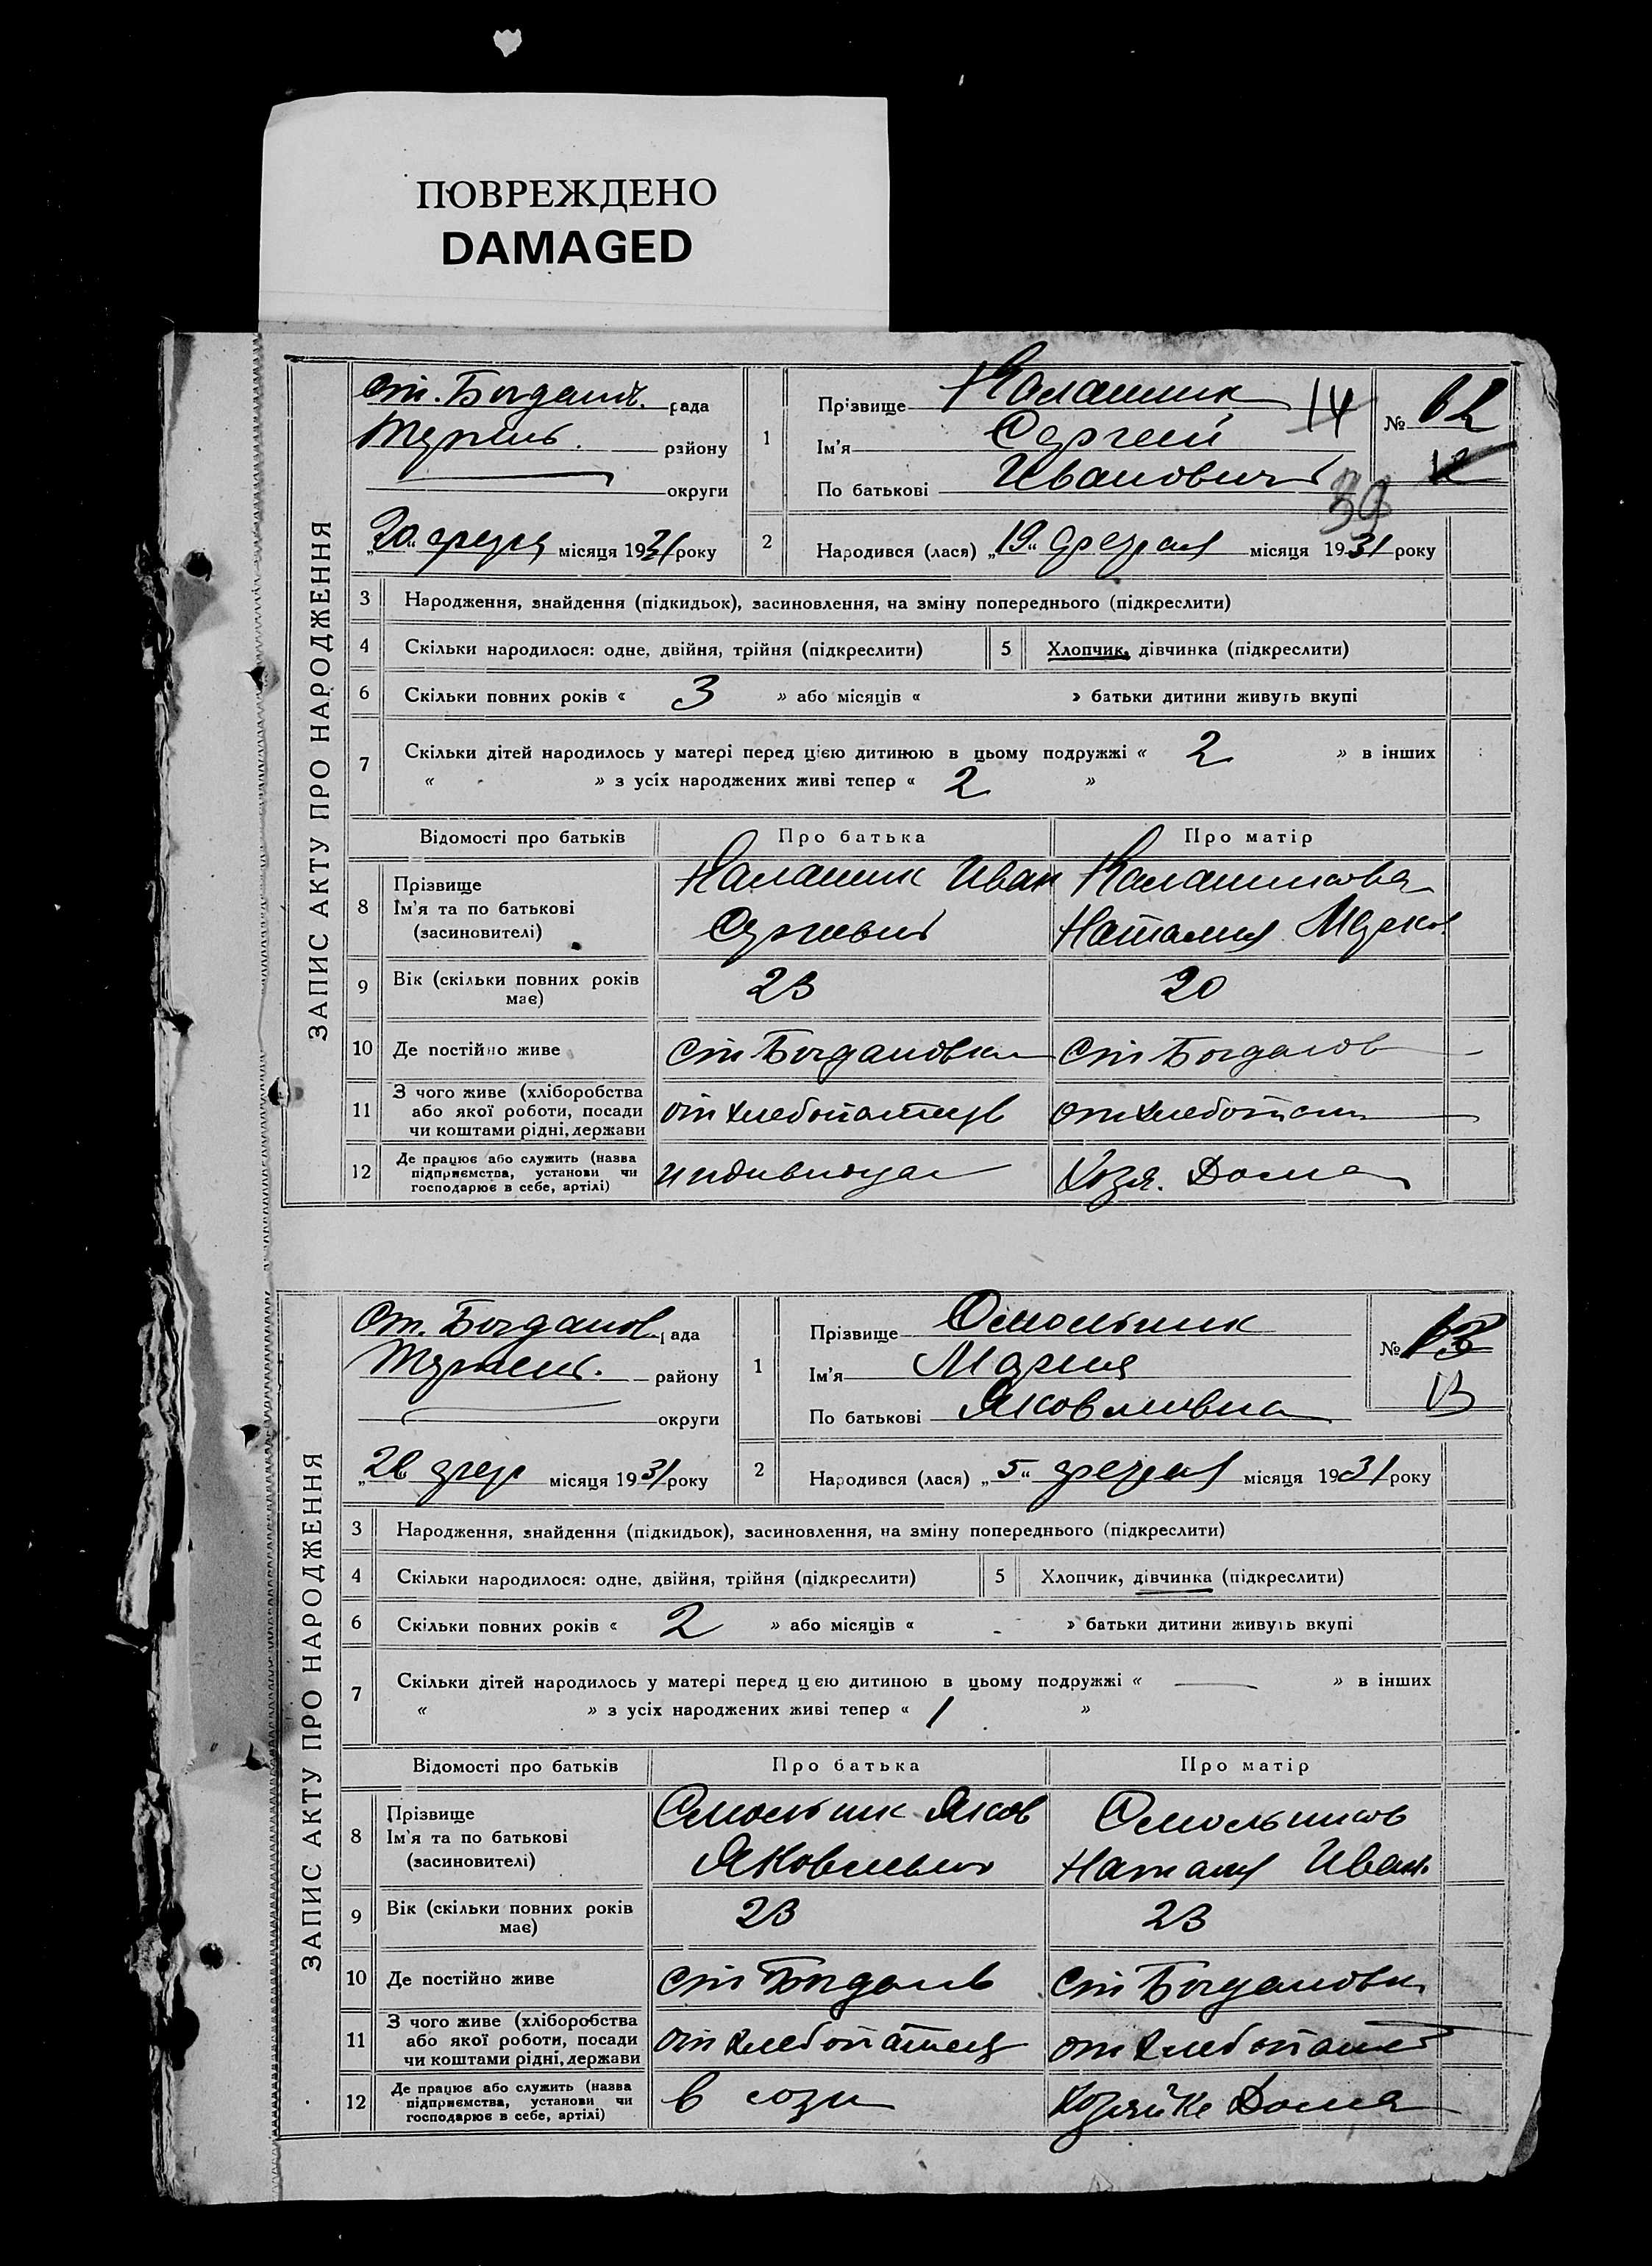 ПОВРЕЖДЕНО
DAMAGED
ЗАПИС АКТУ ПРО НАРОДЖЕННЯ
рада
району
округи
"20" місяця 1931 року
1
Прізвище Калашник 14
Ім'я Сергей
По батькові Иванович
№ 12
39
2 Народився (лася) "19" февраля місяця 1931 року
3 Народження, знайдення (підкидьок), засиновлення, на зміну попереднього (підкреслити)
4 Скільки народилося: одне, двійня, трійня (підкреслити) 5 Хлопчик, дівчинка (підкреслити)
6 Скільки повних років « 3 » або місяців « » батьки дитини живуть вкупі
7 Скільки дітей народилось у матері перед цією дитиною в цьому подружжі « 2 » в інших
« - » з усіх народжених живі тепер « 2 »
Відомості про батьків Про батька Про матір
8 Прізвище
Ім'я та по батькові
(засиновителі)
Калашник Иван
Сергеевич
Калашникова
Наталия
9 Вік (скільки повних років
має) 23 20
10 Де постійно живе ст Богдановка ст Богданов
11 З чого живе (хліборобства
або якої роботи, посади
чи коштами рідні, держави
от хлебопашец
от хлебопаш
12 Де працює або служить (назва
підприємства, установи чи
господарює в себе, артілі)
индивидуал
Хозя. Дома
ЗАПИС АКТУ ПРО НАРОДЖЕННЯ
ст. Богданов рада
району
округи
місяця 1931 року
1
Прізвище Смольник
Ім'я Мария
По батькові Яковлевна
№ 13
13
2 Народився (лася) "5" февраля місяця 1931 року
3 Народження, знайдення (підкидьок), засиновлення, на зміну попереднього (підкреслити)
4 Скільки народилося: одне, двійня, трійня (підкреслити) 5 Хлопчик, дівчинка (підкреслити)
6 Скільки повних років « 2 » або місяців « - » батьки дитини живуть вкупі
7 Скільки дітей народилось у матері перед цією дитиною в цьому подружжі « — » в інших
« » з усіх народжених живі тепер « 1 »
Відомості про батьків Про батька Про матір
8 Прізвище
Ім'я та по батькові
(засиновителі)
Смольник Яков
Яковлевич
Смольников
Наталия Иван.
9 Вік (скільки повних років
має) 23 23
10 Де постійно живе ст Богданов ст Богдановка
11 З чого живе (хліборобства
або якої роботи, посади
чи коштами рідні, держави
от хлебопашец
от хлебопаше
12 Де працює або служить (назва
підприємства, установи чи
господарює в себе, артілі)
в созе
хозяйке Дома